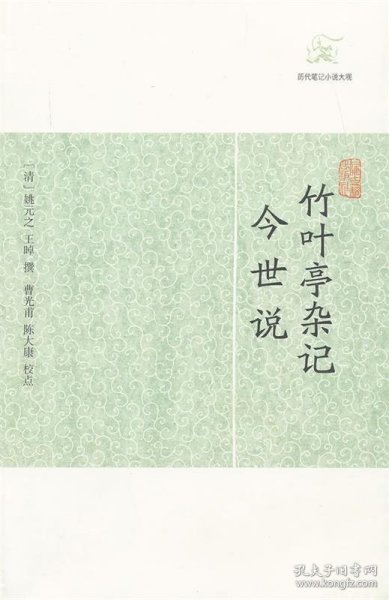 历代笔记小说大观
竹叶亭杂记
今世说
［清］姚元之 王晫 撰 曹光甫 陈大康 校点
孔夫子旧书网